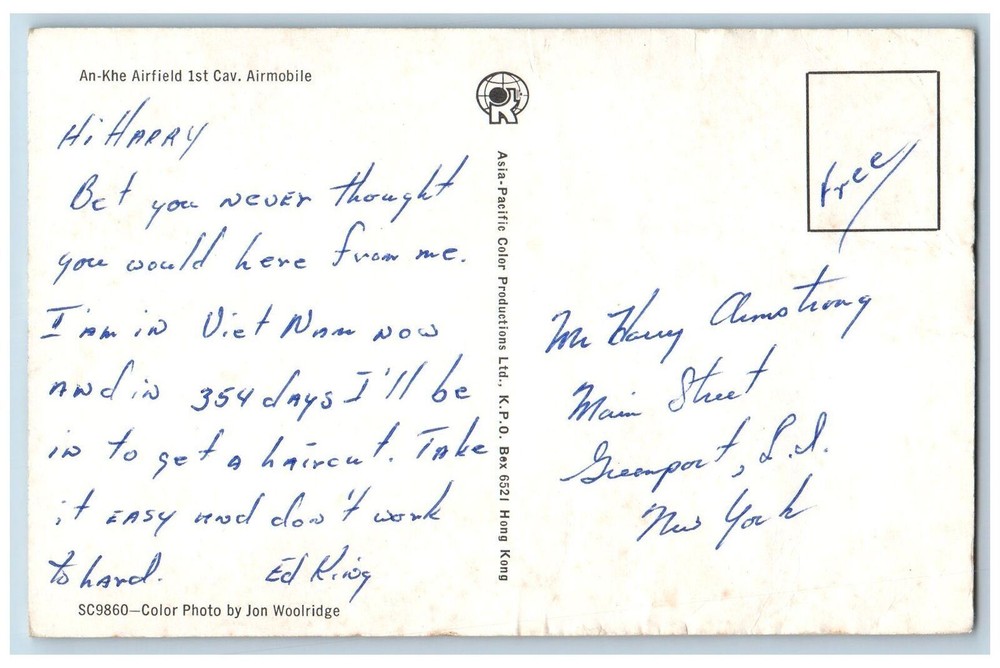 An-Khe Airfield 1st Cav. Airmobile
Hi HARRY
Bet you NEVER thought
you would here from me.
I'am in Viet Nam NOW
AND in 354 days I'll be
in to get a haircut. Take
it EASY and don't work
to hard. Ed King
SC9860—Color Photo by Jon Woolridge
Asia-Pacific Color Productions Ltd., K.P.O. Box 6521 Hong Kong
free
Mr Harry Armstrong
Main Street
Greenport, L.I.
New York